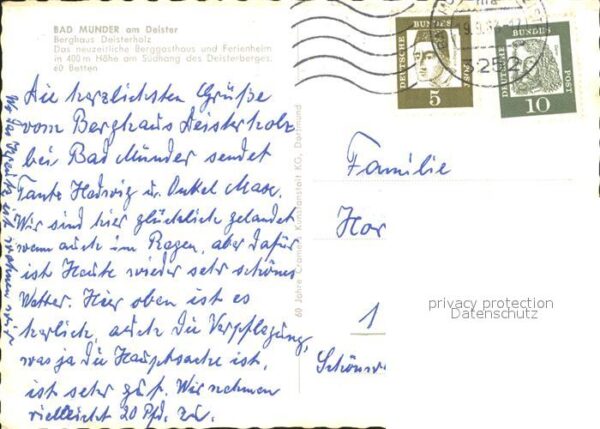 BAD MÜNDER am Deister
Berghaus Deisterholz
Das neuzeitliche Berggasthaus und Ferienheim
in 400 m Höhe am Südhang des Deisterberges.
60 Betten
Die herzlichsten Grüße
vom Berghaus Deisterholz
bei Bad Münder sendet
Tante Hedwig u. Onkel Max.
Wir sind hier glücklich gelandet
wenn auch im Regen, aber dafür
ist Heute wieder sehr schönes
Wetter. Hier oben ist es
herlich, auch die Verpflegung,
was ja die Hauptsache ist,
ist sehr gut. Wir nehmen
vielleicht 20 Pfd. zu.
Wo das Kreuz ist wohnen wir
60 Jahre Cramers Kunstanstalt KG, Dortmund
DEUTSCHE BUNDES POST
5
DEUTSCHE BUNDES POST
10
3252
Familie
Hor
1
Schönw
privacy protection
Datenschutz